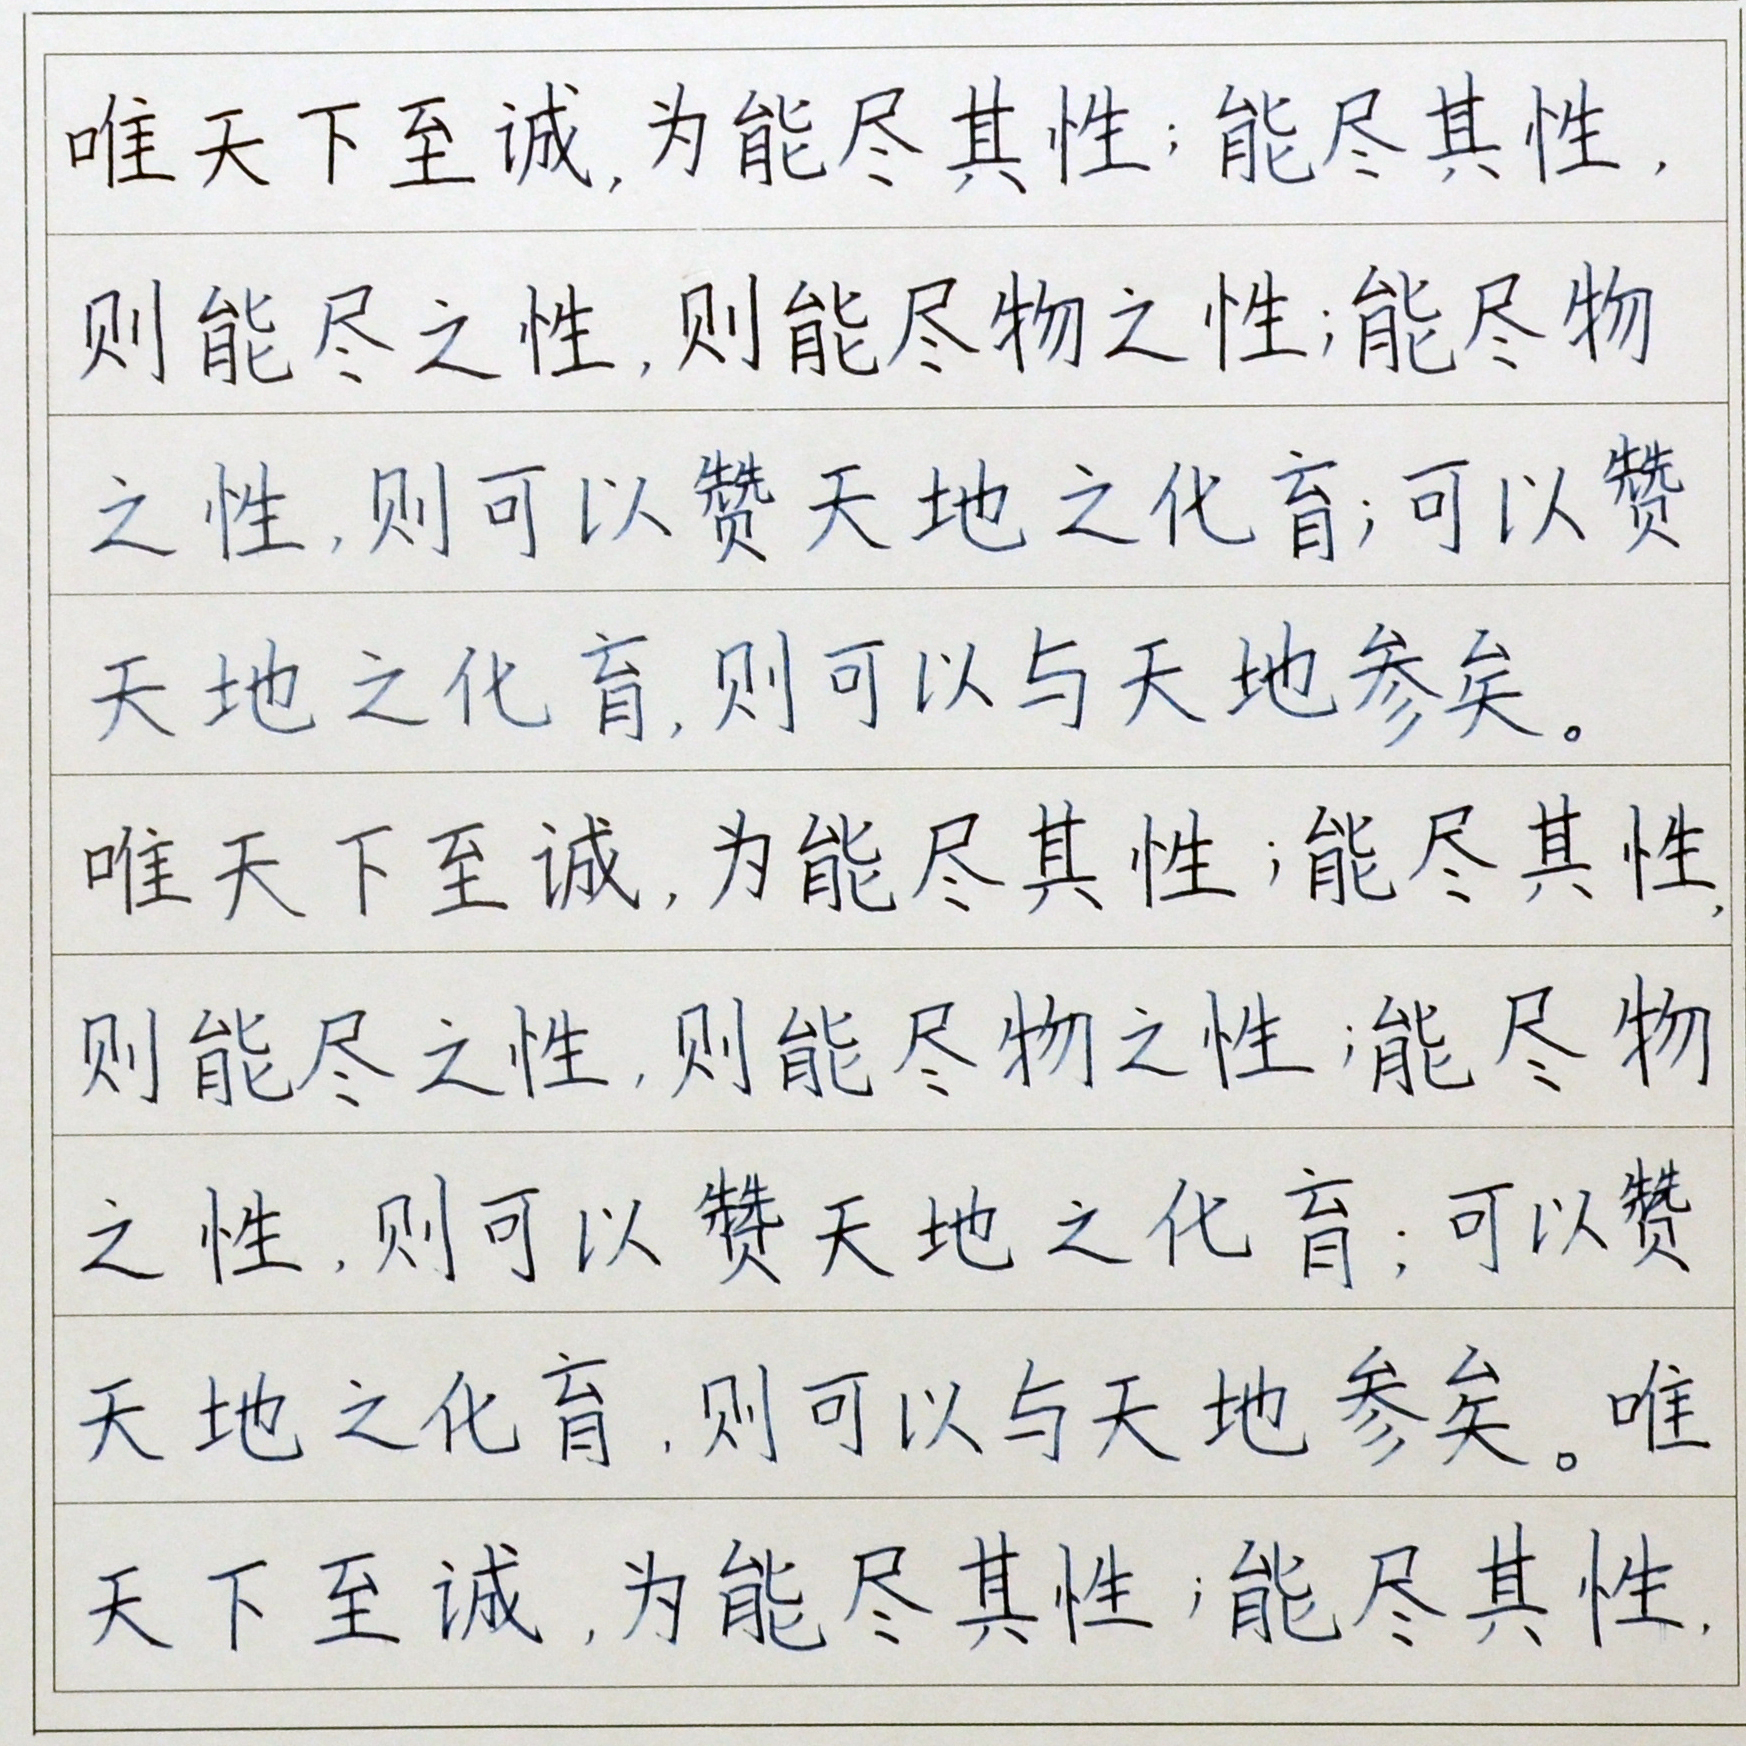 唯天下至诚,为能尽其性;能尽其性,
则能尽之性,则能尽物之性;能尽物
之性,则可以赞天地之化育;可以赞
天地之化育,则可以与天地参矣。
唯天下至诚,为能尽其性;能尽其性,
则能尽之性,则能尽物之性;能尽物
之性,则可以赞天地之化育;可以赞
天地之化育,则可以与天地参矣。唯
天下至诚,为能尽其性;能尽其性,